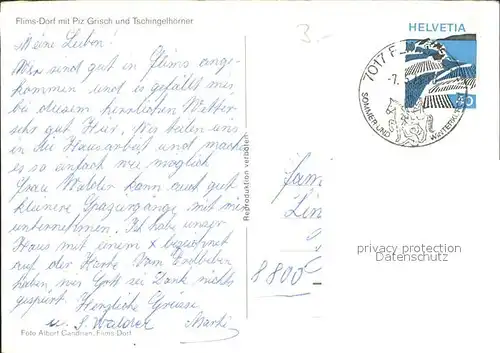 Flims-Dorf mit Piz Grisch und Tschingelhörner
3.-
HELVETIA
7017 F
-7.
SOMMER- UND WINTER
40
Meine Lieben!
Wir sind gut in Flims ange-
kommen und es gefällt mir
bei diesem herrlichen Wetter
sehr gut hier. Wir teilen uns
in die Hausarbeit und machen
es so einfach wie möglich
Frau Walder kann auch gut
kleinere Spaziergänge mit mir
unternehmen. Ich habe unser
Haus mit einem x bezeichnet
auf der Karte. Vom Erdbeben
haben wir Gott sei Dank nichts
gespürt. Herzliche Grüsse
u. S. Walder
Fam
Lin
8800
Reproduktion verboten
Foto Albert Candrian, Flims-Dorf
privacy protection
Datenschutz